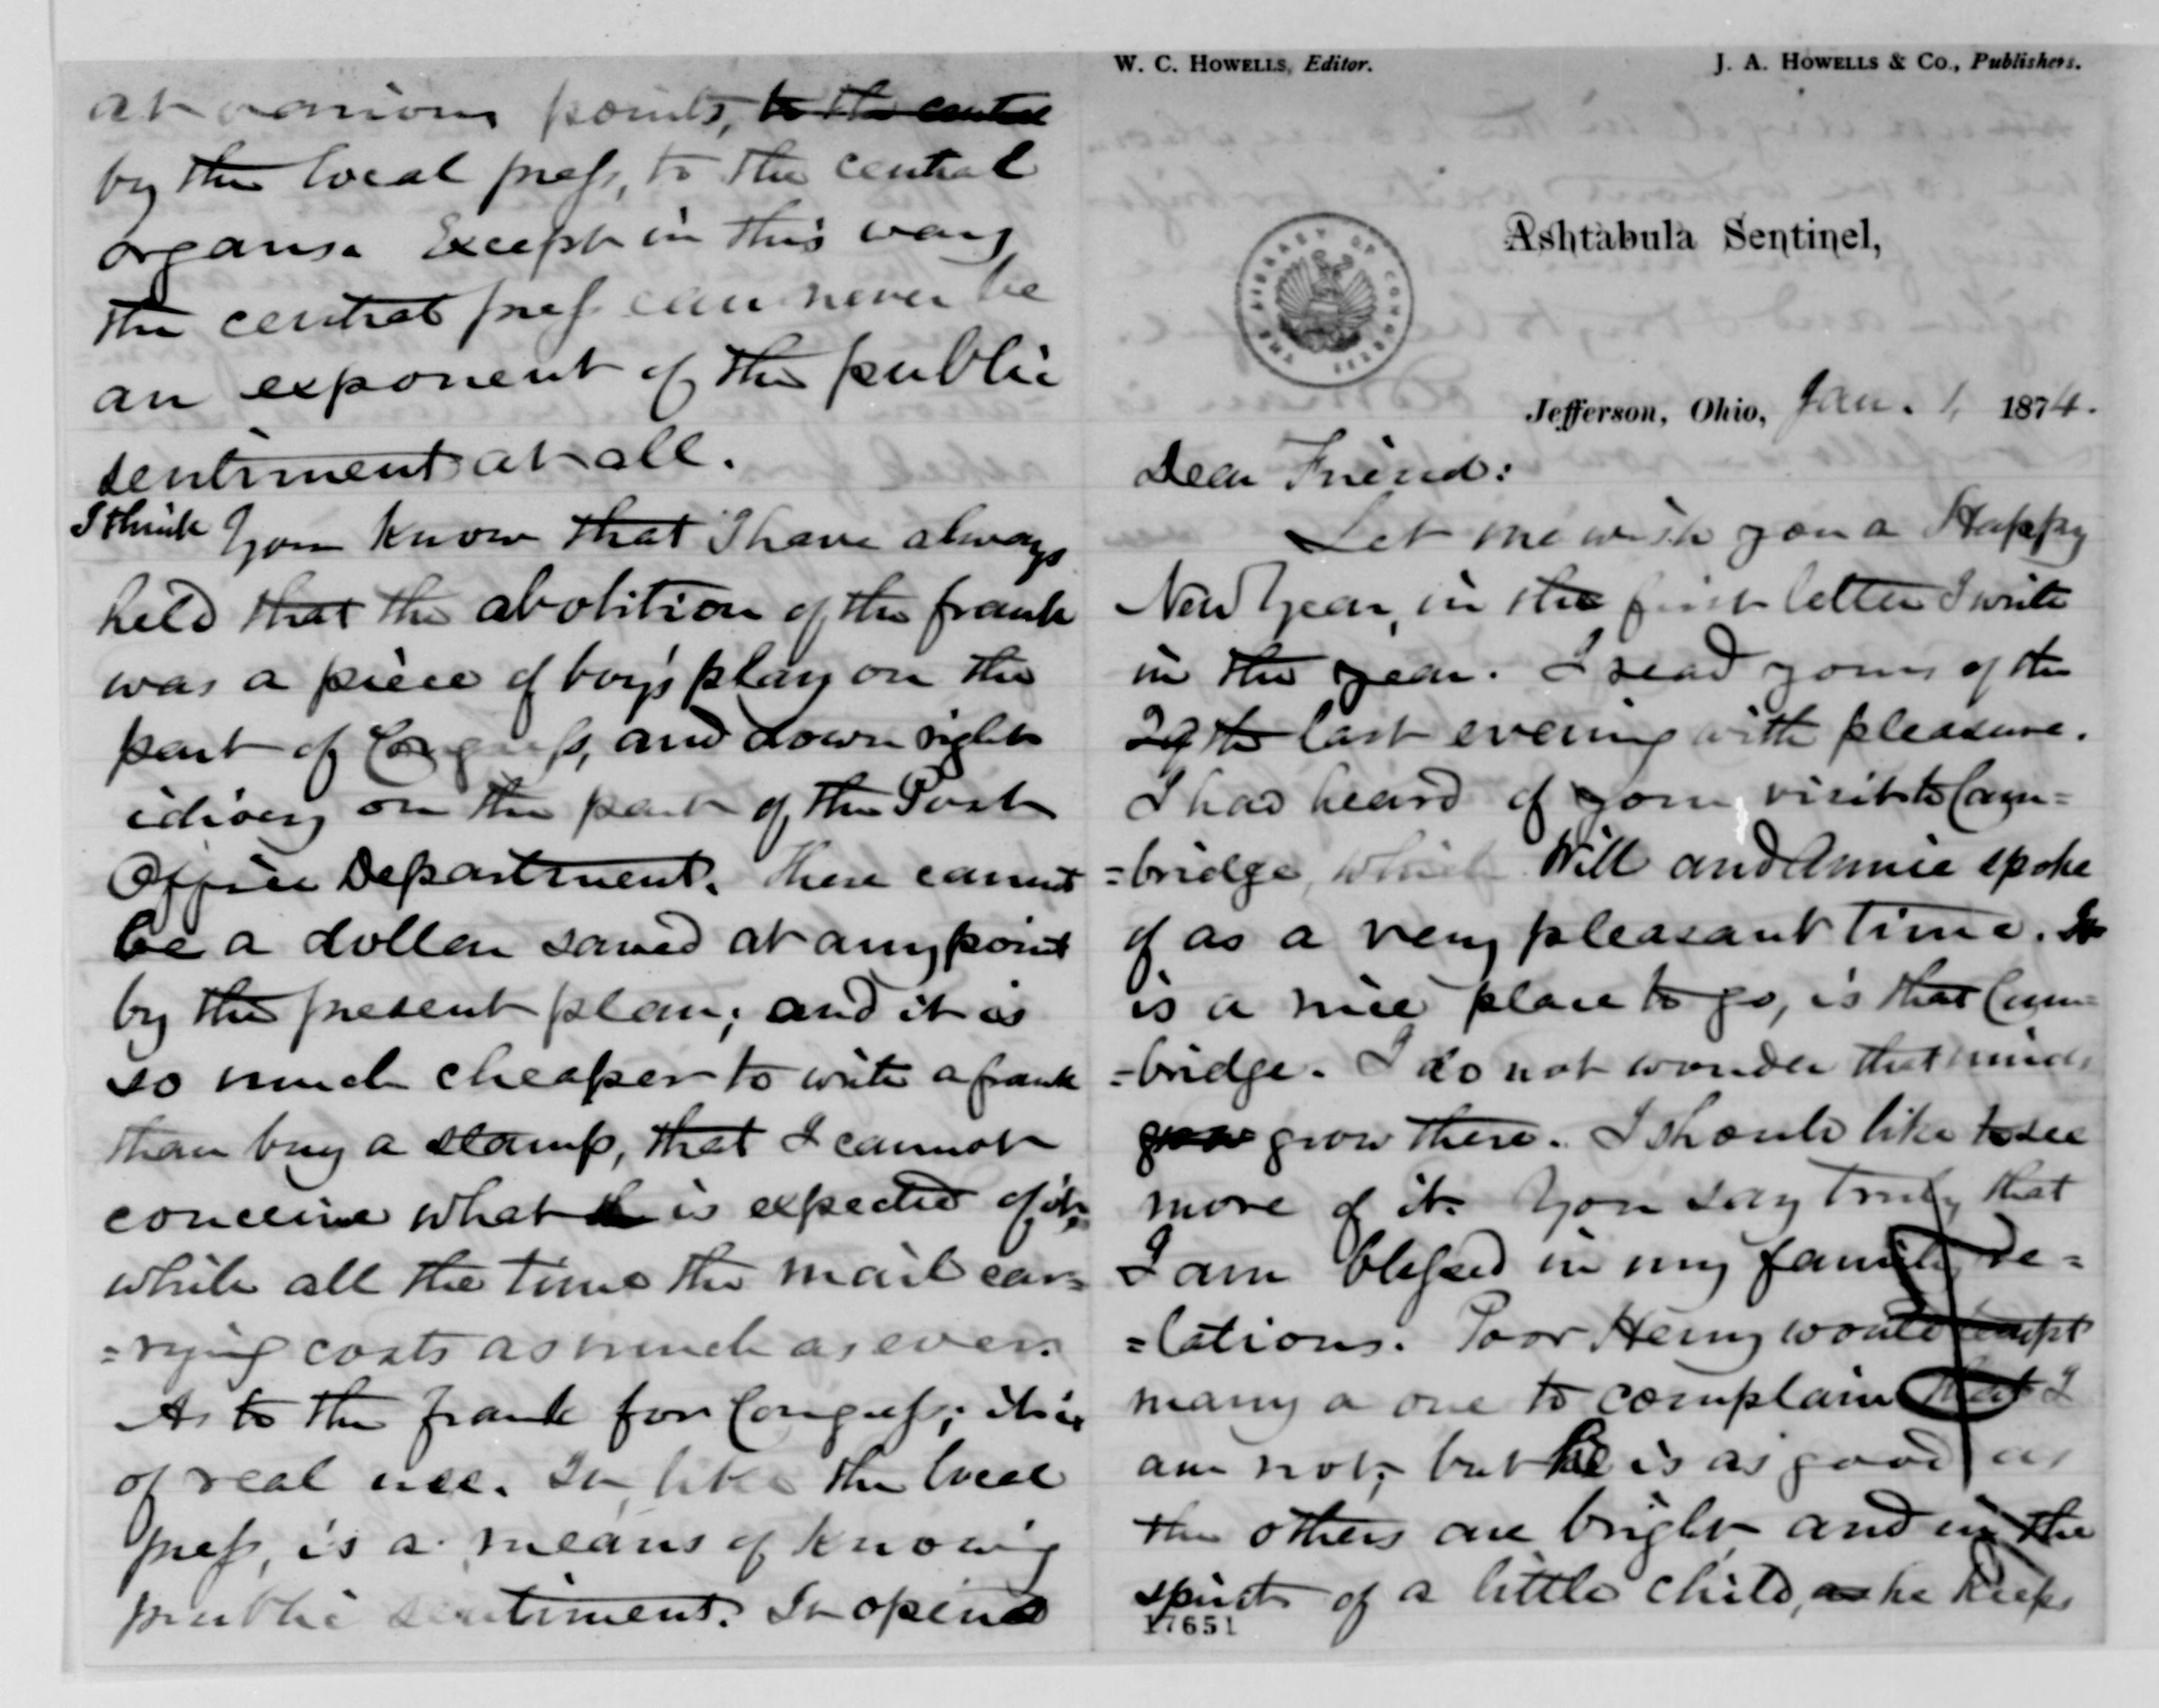 at various points, to the central
by the local press, to the central
organs. Except in this way
the central press can never be
an exponent of the public
sentiment at all.
I think You know that I have always
held that the abolition of the frank
was a piece of boy's play on the
part of Congress, and down right
idiocy on the part of the Post
Office Department. There cannot
be a dollar saved at any point
by the present plan; and it is
so much cheaper to write a frank
than buy a stamp, that I cannot
conceive what is expected of it,
while all the time the mail car=
=rying costs as much as ever.
As to the frank for Congress; it is
of real use. It, like the local
press, is a means of knowing
public sentiment. It opens
W. C. HOWELLS, Editor.
J. A. HOWELLS & Co., Publishers.
Ashtabula Sentinel,
THE LIBRARY OF CONGRESS
Jefferson, Ohio, Jan. 1, 1874.
Dear Friend:
Let me wish you a Happy
New Year, in the first letter I write
in the year. I read yours of the
29th last evening with pleasure.
I had heard of your visit to Cam=
=bridge, which Will and Annie spoke
of as a very pleasant time. It
is a nice place to go, is that Cam=
=bridge. I do not wonder that minds
grow grow there. I should like to see
more of it. You say truly that
I am blessed in my family re=
=lations. Poor Henry would tempt
many a one to complain that I
am not; but he is as good as
the others are bright and in the
spirit of a little child, as he keeps
17651